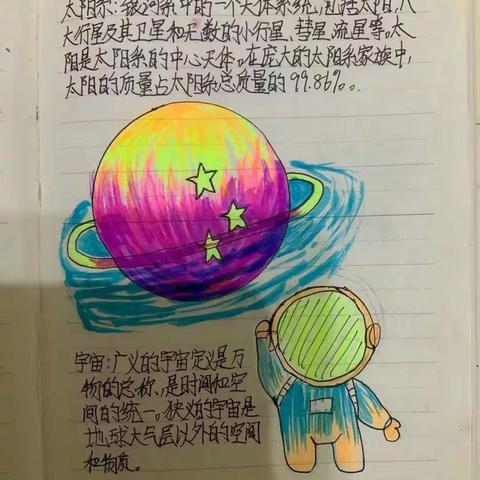 太阳系:银河系中的一个天体系统,包括太阳,八
大行星及其卫星和无数的小行星、彗星、流星等。太
阳是太阳系的中心天体。在庞大的太阳系家族中,
太阳的质量占太阳系总质量的99.86%。
宇宙:广义的宇宙定义是万
物的总称,是时间和空
间的统一。狭义的宇宙是
地球大气层以外的空间
和物质。